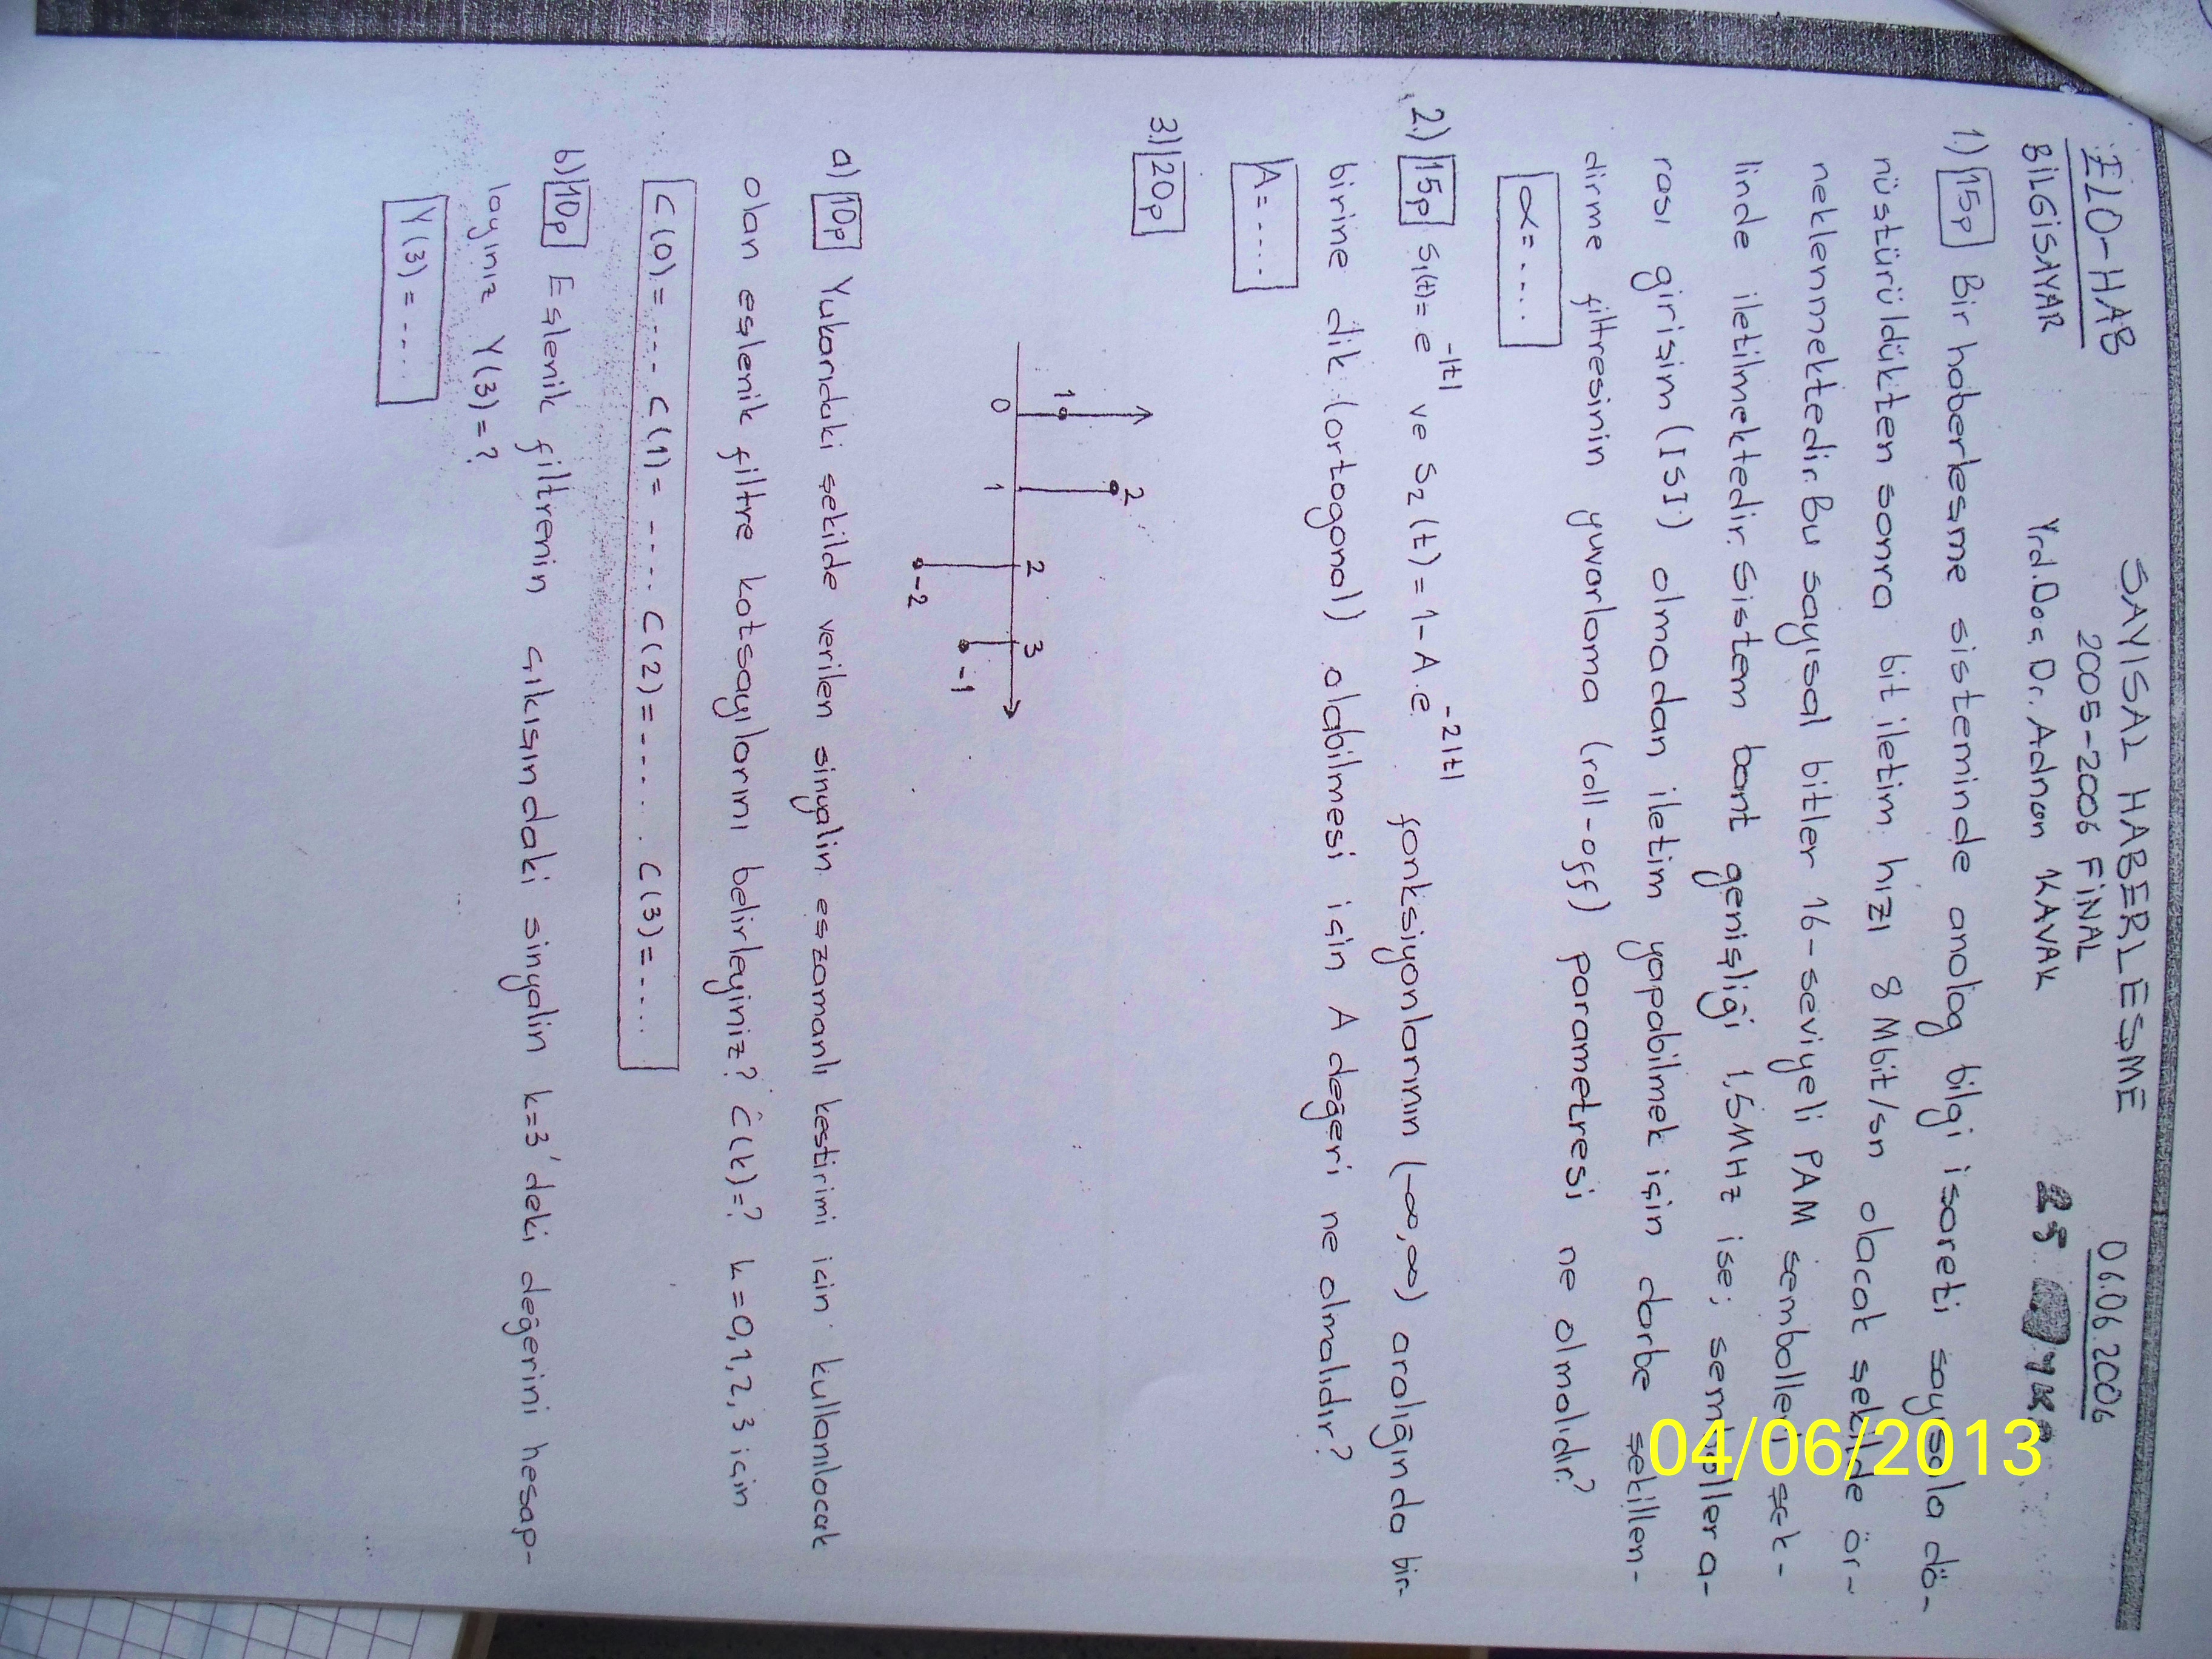 SAYISAL HABERLEŞME
ELO-HAB 2005-2006 FİNAL 06.06.2006
BİLGİSAYAR Yrd.Doç Dr. Adnan KAVAK 25
1.) 15p Bir haberleşme sisteminde analog bilgi işareti sayısala dö-
nüştürüldükten sonra bit iletim hızı 8 Mbit/sn olacak şekilde ör-
neklenmektedir. Bu sayısal bitler 16-seviyeli PAM sembolleri şek-
linde iletilmektedir. Sistem bant genişliği 1,5MHz ise; semboller a-
rası girişim (ISI) olmadan iletim yapabilmek için darbe şekillen-
dirme filtresinin yuvarlama (roll-off) parametresi ne olmalıdır?
α= ....
2.) 15p S1(t)= e^-|t| ve S2(t) = 1-A.e^-2|t| fonksiyonlarının (-∞,∞) aralığında bir-
birine dik (ortogonal) olabilmesi için A değeri ne olmalıdır?
A= ....
3.) 20p
1 2
0 1 2 3
-2 -1
a) 10p Yukarıdaki şekilde verilen sinyalin eşzamanlı kestirimi için kullanılacak
olan eşlenik filtre katsayılarını belirleyiniz? C(k)=? k=0,1,2,3 için
C(0)= .... C(1)= ..... C(2)= ..... C(3)= ....
b) 10p Eşlenik filtrenin çıkışındaki sinyalin k=3'deki değerini hesap-
layınız Y(3)=?
Y(3) = ....
04/06/2013